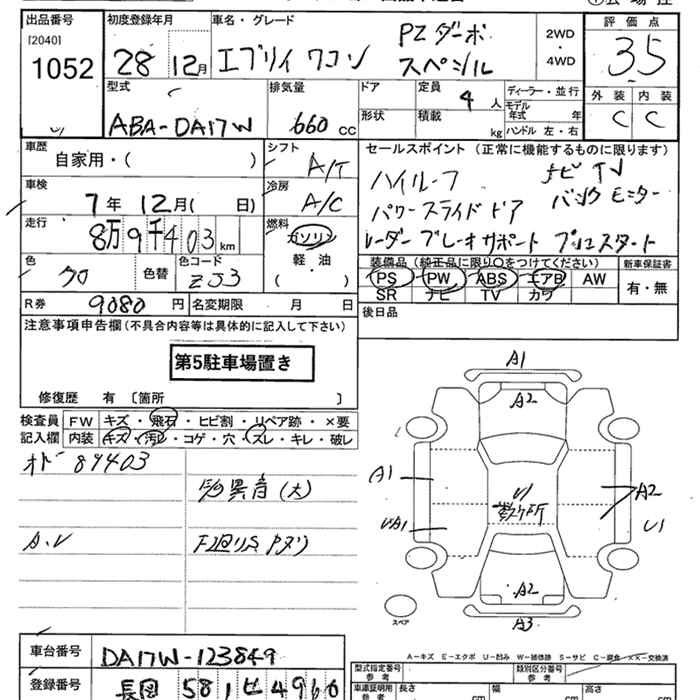 出品番号 初度登録年月 車名・グレード 評価点
[2040]
1052 28 12月 エブリイワゴン PZターボ スペシャル 2WD・4WD 3.5
型式 排気量 ドア 定員 4人 ディーラー・並行 外装 内装
ABA-DA17W 660 cc 形状 積載 kg モデル年式 年 C C
ハンドル 左・右
車歴 シフト セールスポイント (正常に機能するものに限ります)
自家用・( ) A/T ハイルーフ ナビTV
車検 冷房 パワースライドドア バックモニター
7年 12月( 日) A/C
走行 燃料 レーダーブレーキサポート プッシュスタート
8万9千403km ガソリン
色 色替 色コード 軽・油 装備品 (純正品に限り○をつけてください) 新車保証書
クロ ZJ3 ( ) PS PW ABS エアB AW 有・無
SR ナビ TV カワ
R券 9080円 名変期限 月 日 後日品
注意事項申告欄(不具合内容等は具体的に記入して下さい)
第5駐車場置き
修復歴 有 〔箇所 〕
検査員 FW キズ・飛石・ヒビ割・リペア跡・×要
記入欄 内装 キズ・汚レ・コゲ・穴・スレ・キレ・破レ
オドー 89403
異音(大)
A.U
A1
A2
A1 U1 数ヶ所 A2
UA1 U1
A2
スペア A3
A-キズ E-エクボ U-凹み W-補修跡 S-サビ C-腐食 ××-交換済
車台番号 DA17W-123849 型式指定番号 参考 類別区分番号 参考
登録番号 長岡 581 ヒ 4960 車庫証明用 参考 長さ cm 幅 cm 高さ cm